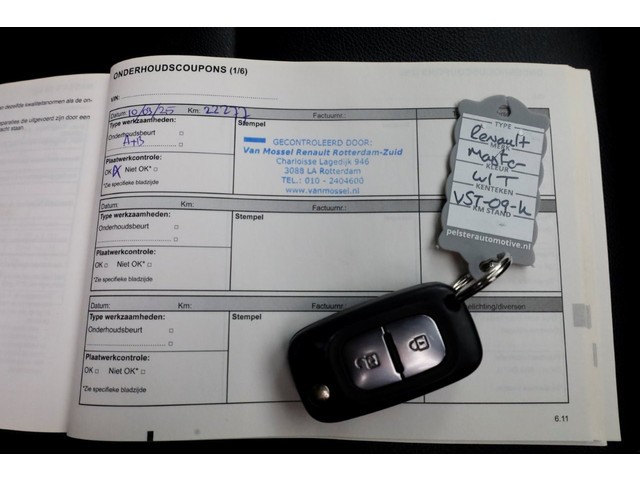 ONDERHOUDSCOUPONS (1/6)
VIN:
Datum: 10/03/25 Km: 22277 Factuurnr.:
Type werkzaamheden: Stempel
Onderhoudsbeurt
A+B
Plaatwerkcontrole:
OK Niet OK*
*Zie specifieke bladzijde
GECONTROLEERD DOOR:
Van Mossel Renault Rotterdam-Zuid
Charloisse Lagedijk 946
3088 LA Rotterdam
TEL.: 010 - 2404600
www.vanmossel.nl
Datum: Km: Factuurnr.:
Type werkzaamheden: Stempel
Onderhoudsbeurt
Plaatwerkcontrole:
OK Niet OK*
*Zie specifieke bladzijde
Datum: Km: Factuurnr.: lichting/diversen
Type werkzaamheden: Stempel
Onderhoudsbeurt
Plaatwerkcontrole:
OK Niet OK*
*Zie specifieke bladzijde
6.11
TYPE
Renault
MERK
Master
KLEUR
WIT
KENTEKEN
VST-09-K
KM STAND
pelsterautomotive.nl